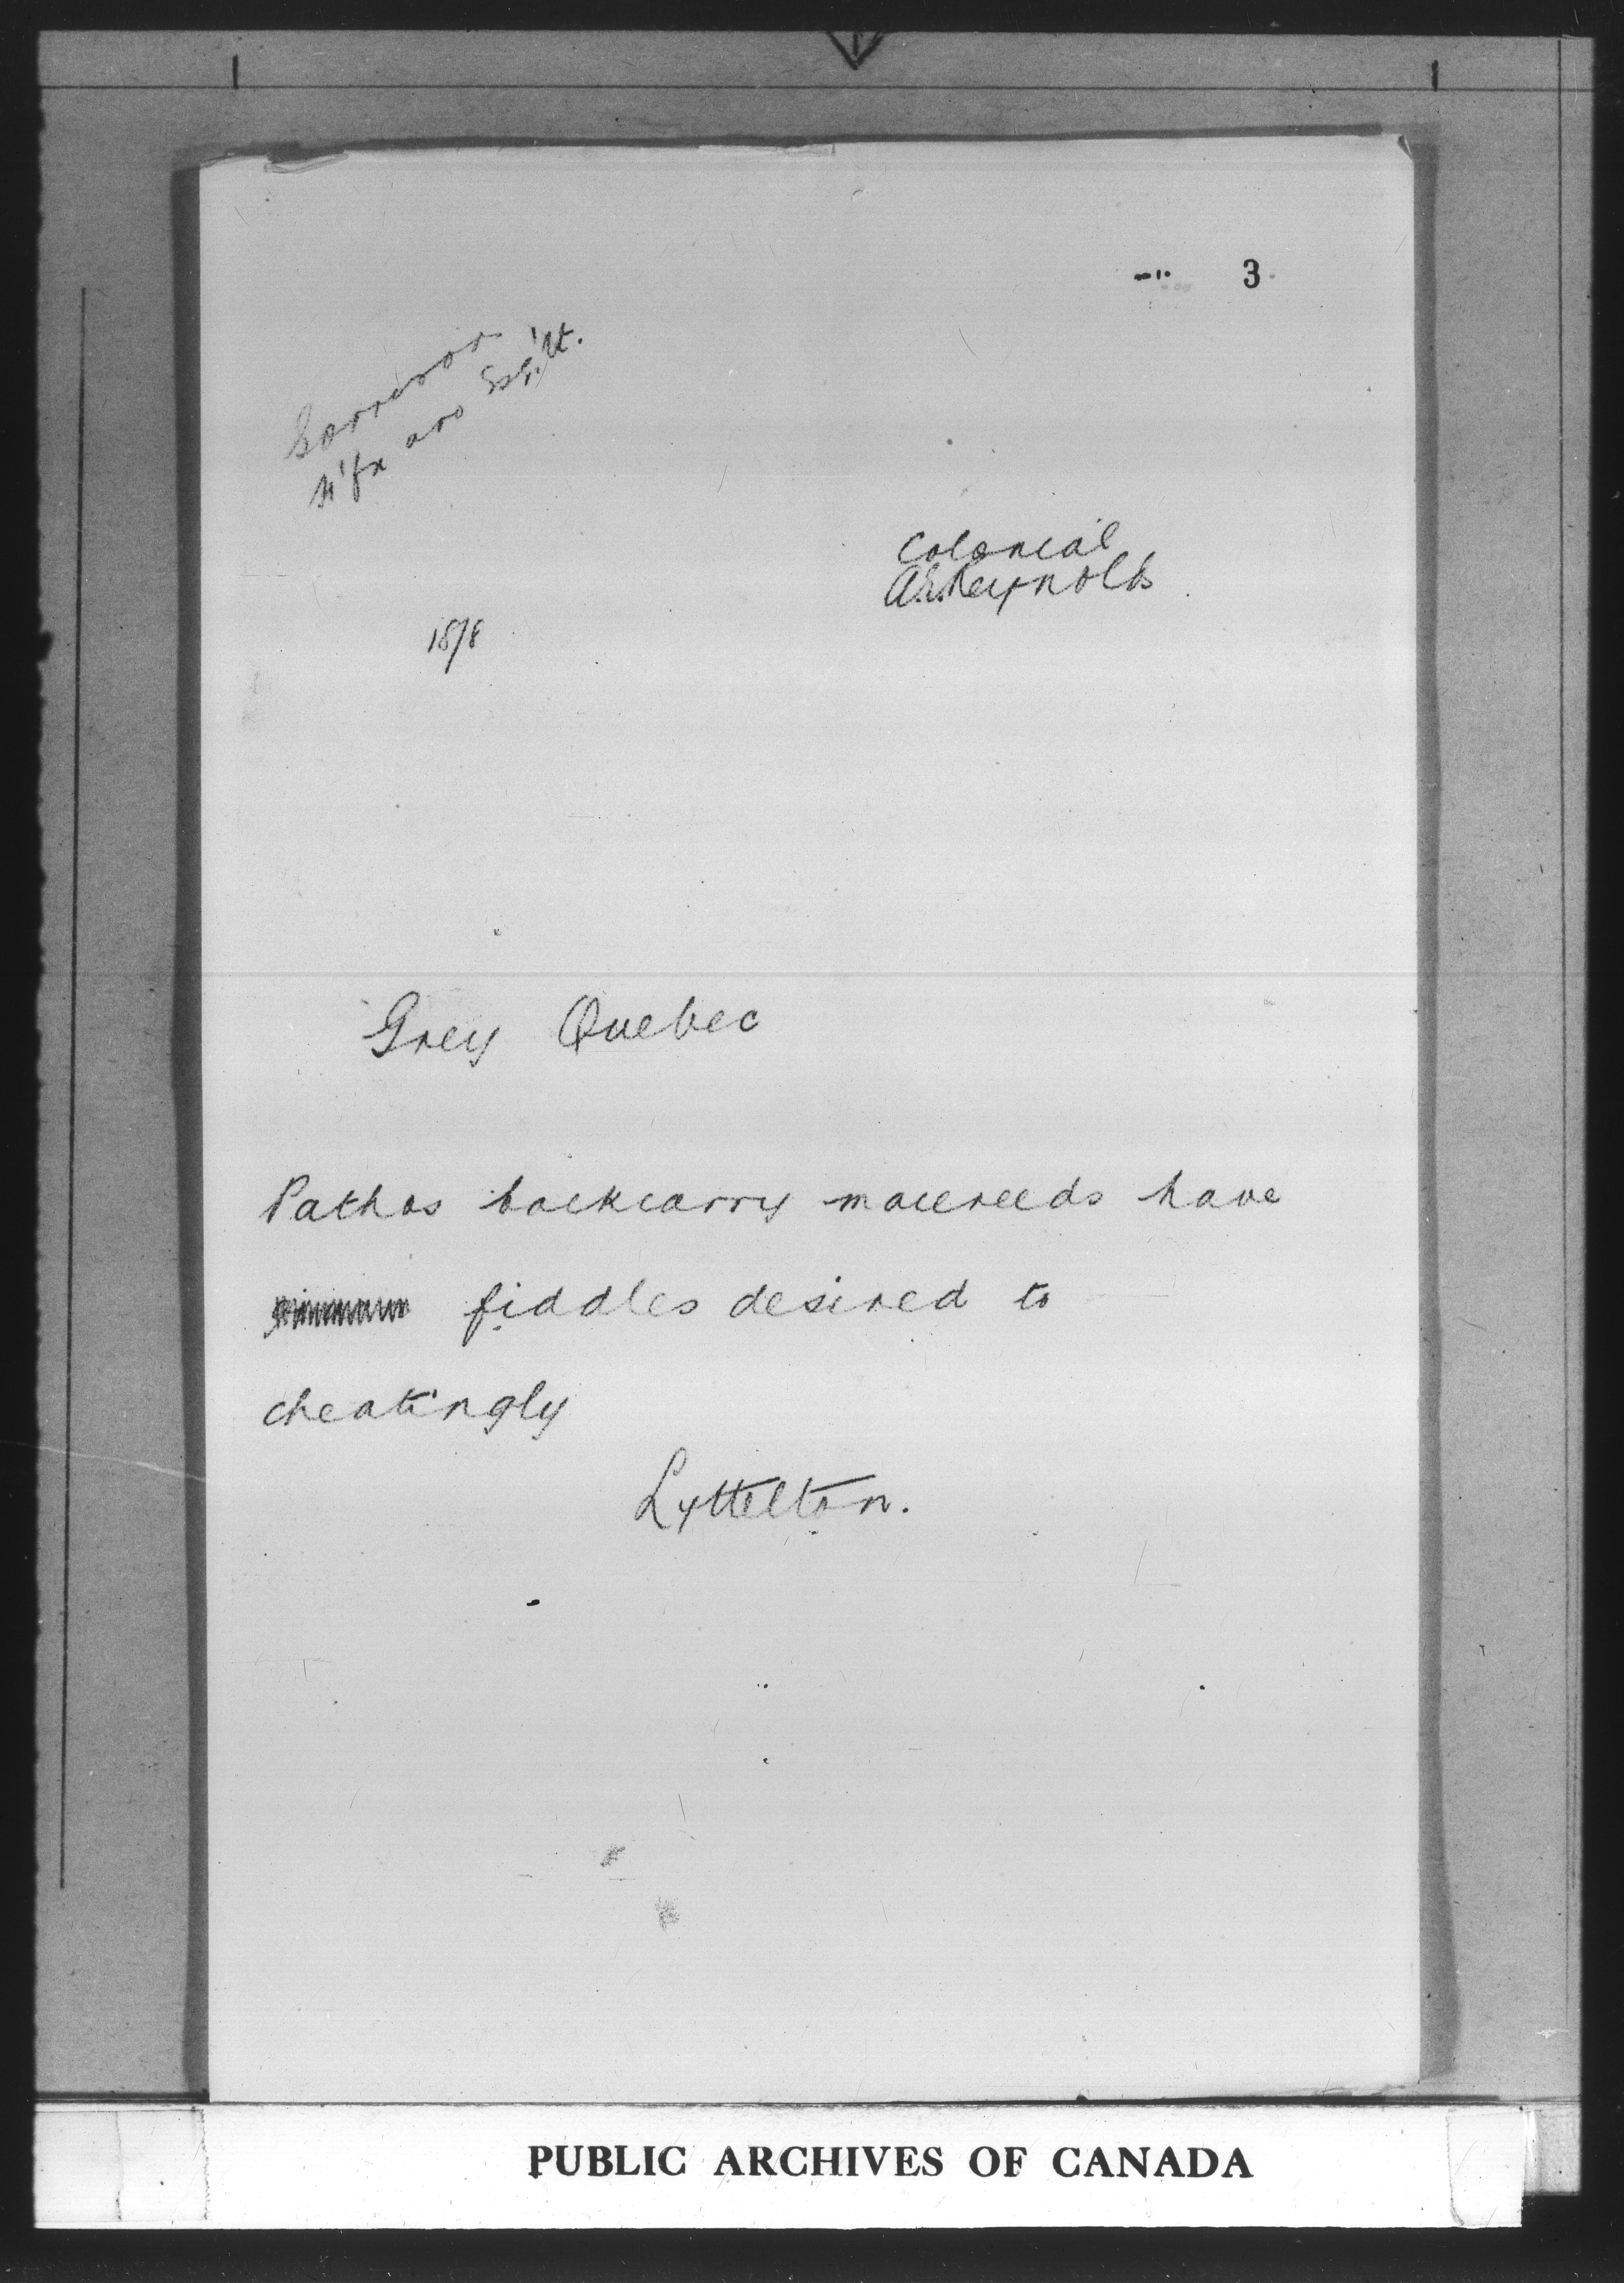 3
Garrison
H'fx and Esq'lt.
Colonial
A.E. Reynolds
18/8
Grey Quebec
Pathos backcarry macereeds have
fiddles desired to
cheatingly
Lyttelton.
PUBLIC ARCHIVES OF CANADA